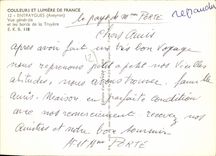 COULEURS ET LUMIÈRE DE FRANCE
12 - ENTRAYGUES (Aveyron)
Vue générale
et les bords de la Truyère
le pays de Mme FORTE
Chers Amis
après avoir fait un très bon voyage
nous reprenons petit à petit nos vieilles
habitudes, nous avons trouvé famille
amis. Maison en parfaite condition
avec nos remerciements recevez nos
amitiés et notre bon souvenir
M et Mme FORTE